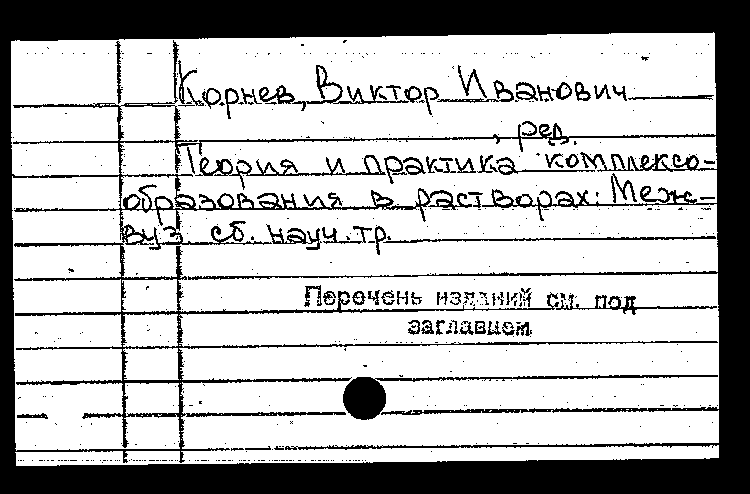 Корнев, Виктор Иванович
, ред.
Теория и практика комплексо-
образования в растворах: Меж-
вуз сб. науч. тр.
Перечень изданий см. под
заглавием